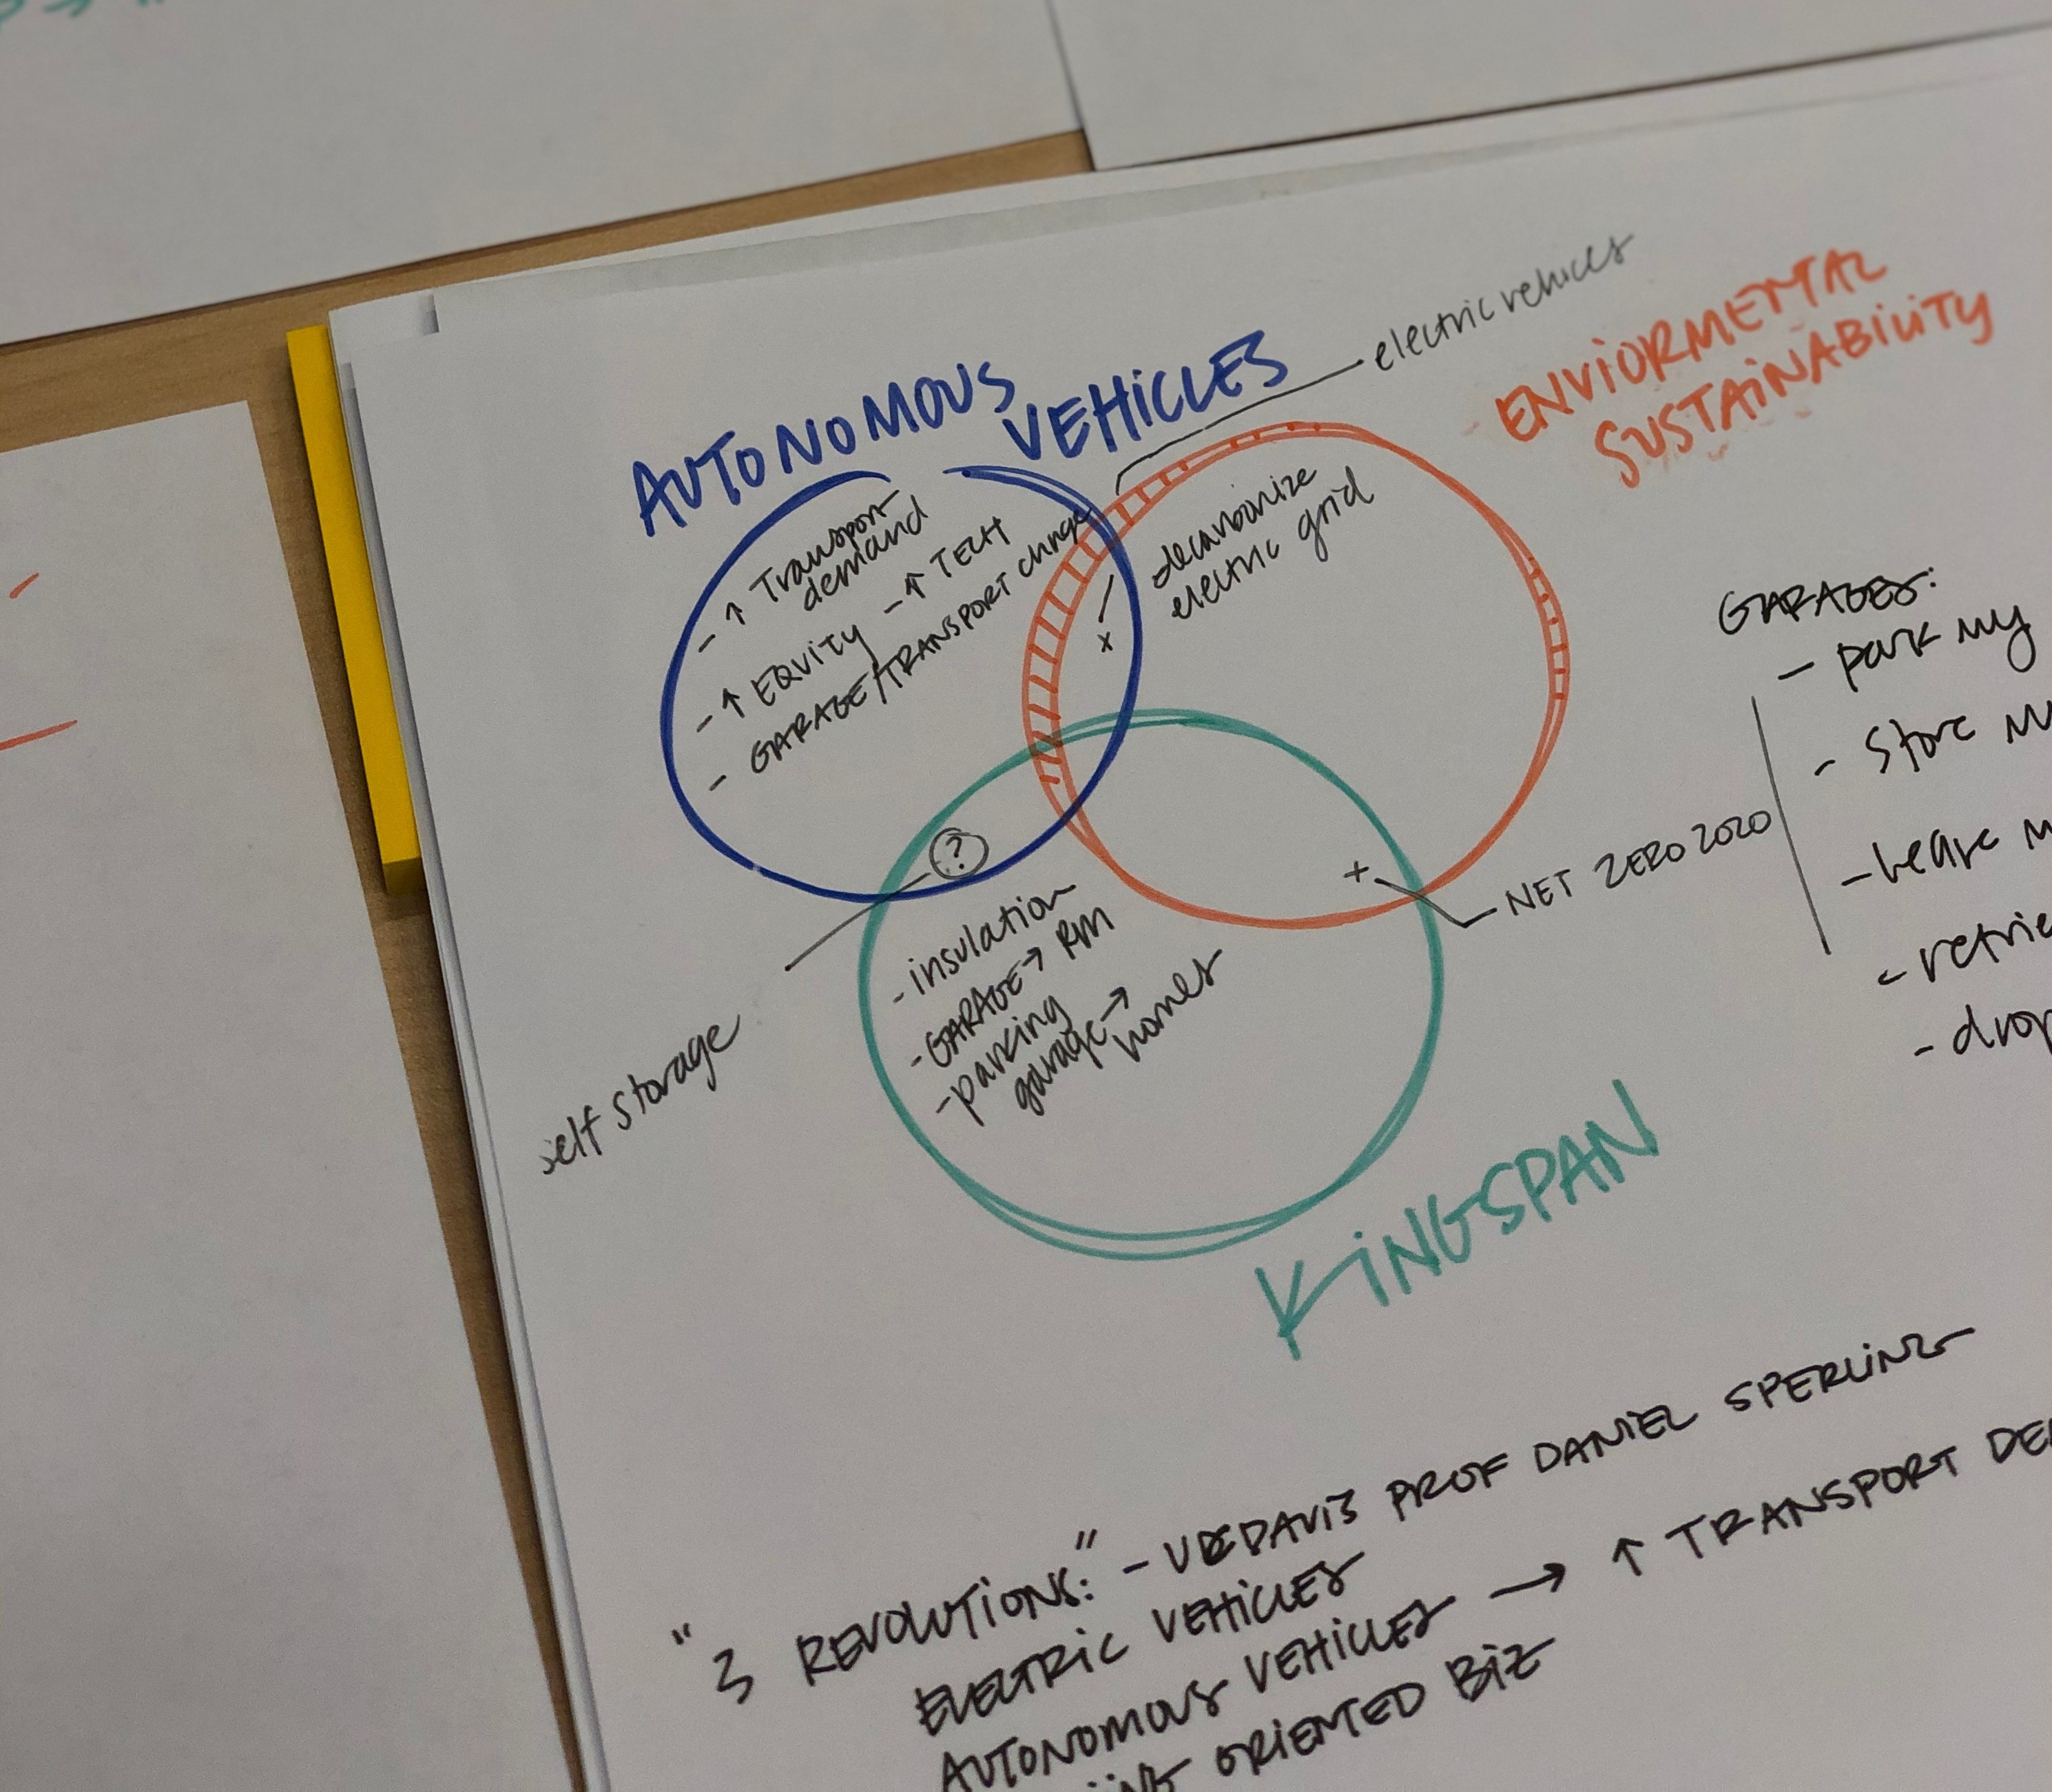 electric vehicles
AUTONOMOUS
VEHiCLES
ENVIORMENTAL
SUSTAiNABiLiTY
- ↑ Transport
demand
- ↑ EQUiTY - ↑ TECH
- GARAGE/TRANSPORT chnge
decarbonize
electric grid
x
?
+
self storage
- insulation
- GARAGE → RM
- parking
garage →
homes
NET ZERO 2020
GARAGES:
- park my
- Store
- leave
- retrie
- drop
KiNGSPAN
"3 REVOLUTiONS:" - UCDAViS PROF DANiEL SPERLiNG
ELECTRiC VEHiCLES
AUTONOMOUS VEHiCLES → ↑ TRANSPORT DE
ORiENTED BiZ